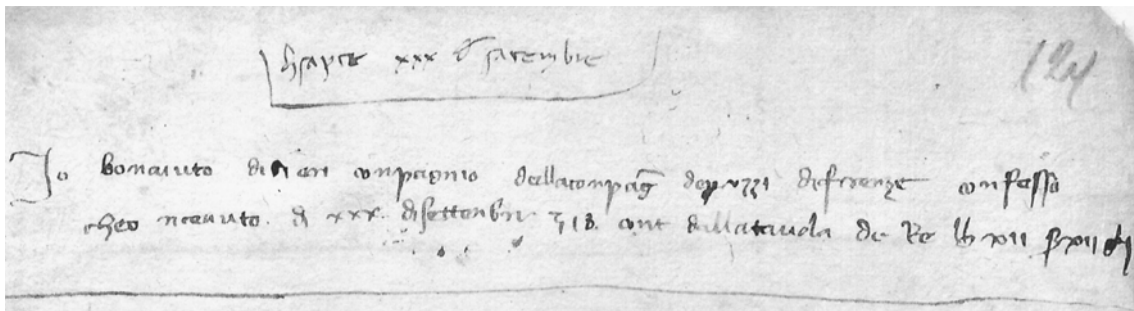 xxx setembre
Io bonaiuto di neri conpangnio dellaconpang de peruzzi difirenze confesso
cheo riceuuto di xxx disettenbre 318 cont dallatauola de Re lb xii s xii